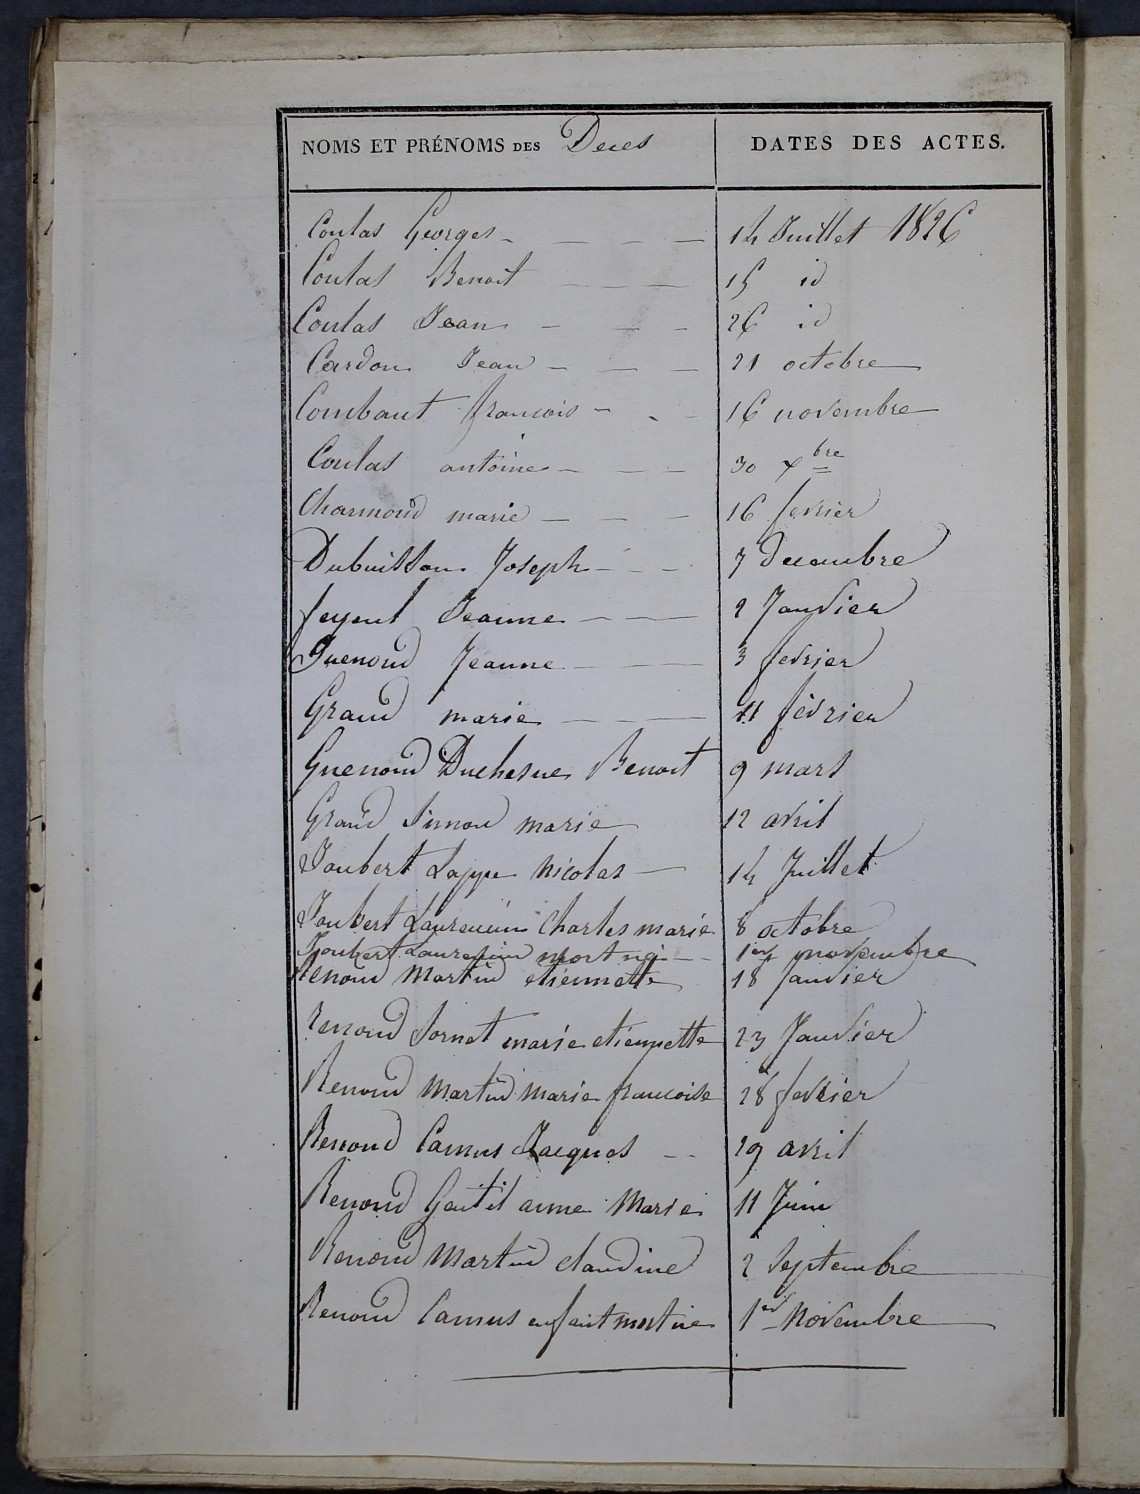 NOMS ET PRÉNOMS DES Deces DATES DES ACTES.
Coulas Georges 14 Juillet 1826
Coulas Benoit 15 id
Coulas Jean 26 id
Cardon Jean 21 octobre
Combaut francois 16 novembre
Coulas antoine 30 xbre
Charmond marie 16 fevrier
Dubuisson Joseph 7 decembre
feyeul Jeanne 2 Janvier
Guenoud Jeanne 3 fevrier
Graud marie 11 fevrier
Guenoud Duchesne Benoit 9 mars
Graud Simon marie 12 avril
Joubert Lappe Nicolas 14 Juillet
Joubert Laurencin Charles marie 8 octobre
Joubert Laurencin mort né 1er novembre
Renoud Martin etiennette 18 Janvier
Renoud Jornet marie etiennette 23 Janvier
Renoud Martin marie francoise 28 fevrier
Renoud Camus Jacques 29 avril
Renoud Gentil anne Marie 11 Juin
Renoud Martin claudine 2 Septembre
Renoud Camus enfant mort né 1er Novembre